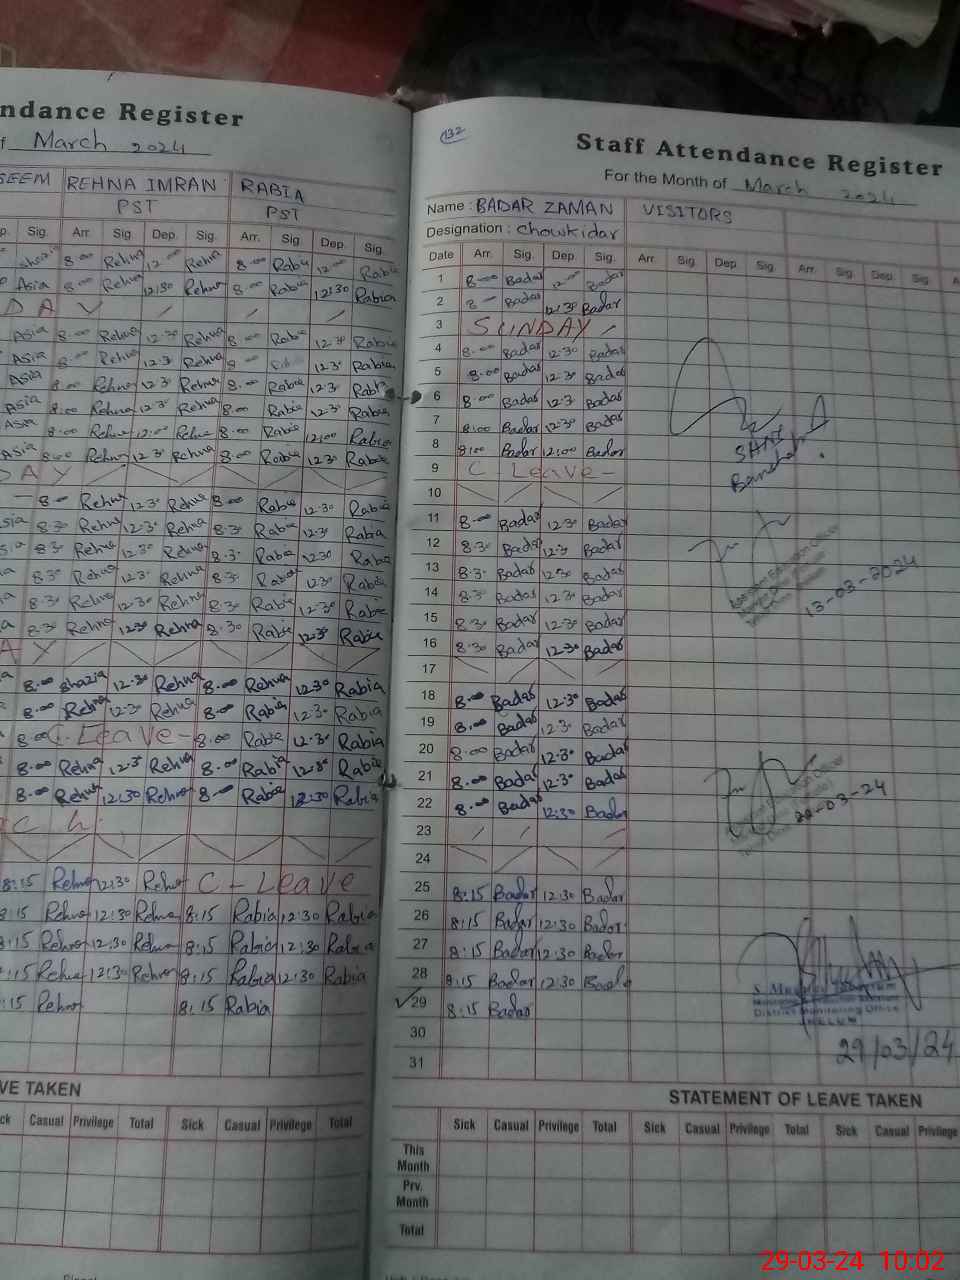 ndance Register
March 2024
SEEM REHNA IMRAN RABIA
PST PST
p. Sig. Arr. Sig. Dep. Sig. Arr. Sig. Dep. Sig.
8.00 Rehna 12.00 Rehna 8.00 Rabia 12.00 Rabia
Asia 8.00 Rehna 12:30 Rehna 8.00 Rabia 12:30 Rabia
D A Y
Asia 8.00 Rehna 12.30 Rehna 8.00 Rabia 12.30 Rabia
Asia 8.00 Rehna 12.30 Rehna 12.30 Rabia
Asia 8.00 Rehna 12.30 Rehna 8.00 Rabia 12.30 Rabia
Asia 8.00 Rehna 12.30 Rehna 8.00 Rabia 12.30 Rabia
Asia 8.00 Rehna 12:00 Rehna 8.00 Rabia 12:00 Rabia
Asia 8.00 Rehna 12.30 Rehna 8.00 Rabia 12.30 Rabia
D A Y
8.00 Rehna 12.30 Rehna 8.00 Rabia 12.30 Rabia
sia 8.30 Rehna 12.30 Rehna 8.30 Rabia 12.30 Rabia
sia 8.30 Rehna 12.30 Rehna 8.30 Rabia 12.30 Rabia
ia 8.30 Rehna 12.30 Rehna 8.30 Rabia 12.30 Rabia
a 8.30 Rehna 12.30 Rehna 8.30 Rabia 12.30 Rabia
a 8.30 Rehna 12.30 Rehna 8.30 Rabia 12.30 Rabia
A Y
8.00 Shazia 12.30 Rehna 8.00 Rehna 12.30 Rabia
8.00 Rehna 12.30 Rehna 8.00 Rabia 12.30 Rabia
8.00 C. Leave - 8.00 Rabia 12.30 Rabia
8.00 Rehna 12.30 Rehna 8.00 Rabia 12.30 Rabia
8.00 Rehna 12:30 Rehna 8.00 Rabia 12:30 Rabia
8:15 Rehna 12:30 Rehna C - Leave
8:15 Rehna 12:30 Rehna 8:15 Rabia 12:30 Rabia
8:15 Rehna 12:30 Rehna 8:15 Rabia 12:30 Rabia
:15 Rehna 12:30 Rehna 8:15 Rabia 12:30 Rabia
:15 Rehna 8:15 Rabia
VE TAKEN
ck Casual Privilege Total Sick Casual Privilege Total
132
Staff Attendance Register
For the Month of March 2024
Name : BADAR ZAMAN VISITORS
Designation : Chowkidar
Date Arr. Sig. Dep. Sig. Arr. Sig. Dep. Sig. Arr. Sig. Dep. Sig. A
1 8.00 Badar 12.00 Badar
2 8.00 Badar 12.30 Badar
3 SUNDAY
4 8.00 Badar 12.30 Badar
5 8.00 Badar 12.30 Badar
6 8.00 Badar 12.30 Badar
7 8:00 Badar 12.30 Badar
8 8:00 Badar 12:00 Badar
9 C Leave -
10
11 8.00 Badar 12.30 Badar
12 8.30 Badar 12.30 Badar
13 8.30 Badar 12.30 Badar
14 8.30 Badar 12.30 Badar
15 8.30 Badar 12.30 Badar
16 8.30 Badar 12.30 Badar
17
18 8.00 Badar 12.30 Badar
19 8.00 Badar 12.30 Badar
20 8.00 Badar 12.30 Badar
21 8.00 Badar 12.30 Badar
22 8.00 Badar 12:30 Badar
23
24
25 8:15 Badar 12:30 Badar
26 8:15 Badar 12:30 Badar
27 8:15 Badar 12:30 Badar
28 8:15 Badar 12:30 Badar
29 8:15 Badar
30
31
Assistant Education Officer
13-03-2024
Assistant Education Officer
22-03-24
District Monitoring Office
29/03/24
STATEMENT OF LEAVE TAKEN
Sick Casual Privilege Total Sick Casual Privilege Total Sick Casual Privilege
This Month
Prv. Month
Total
29-03-24 10:02